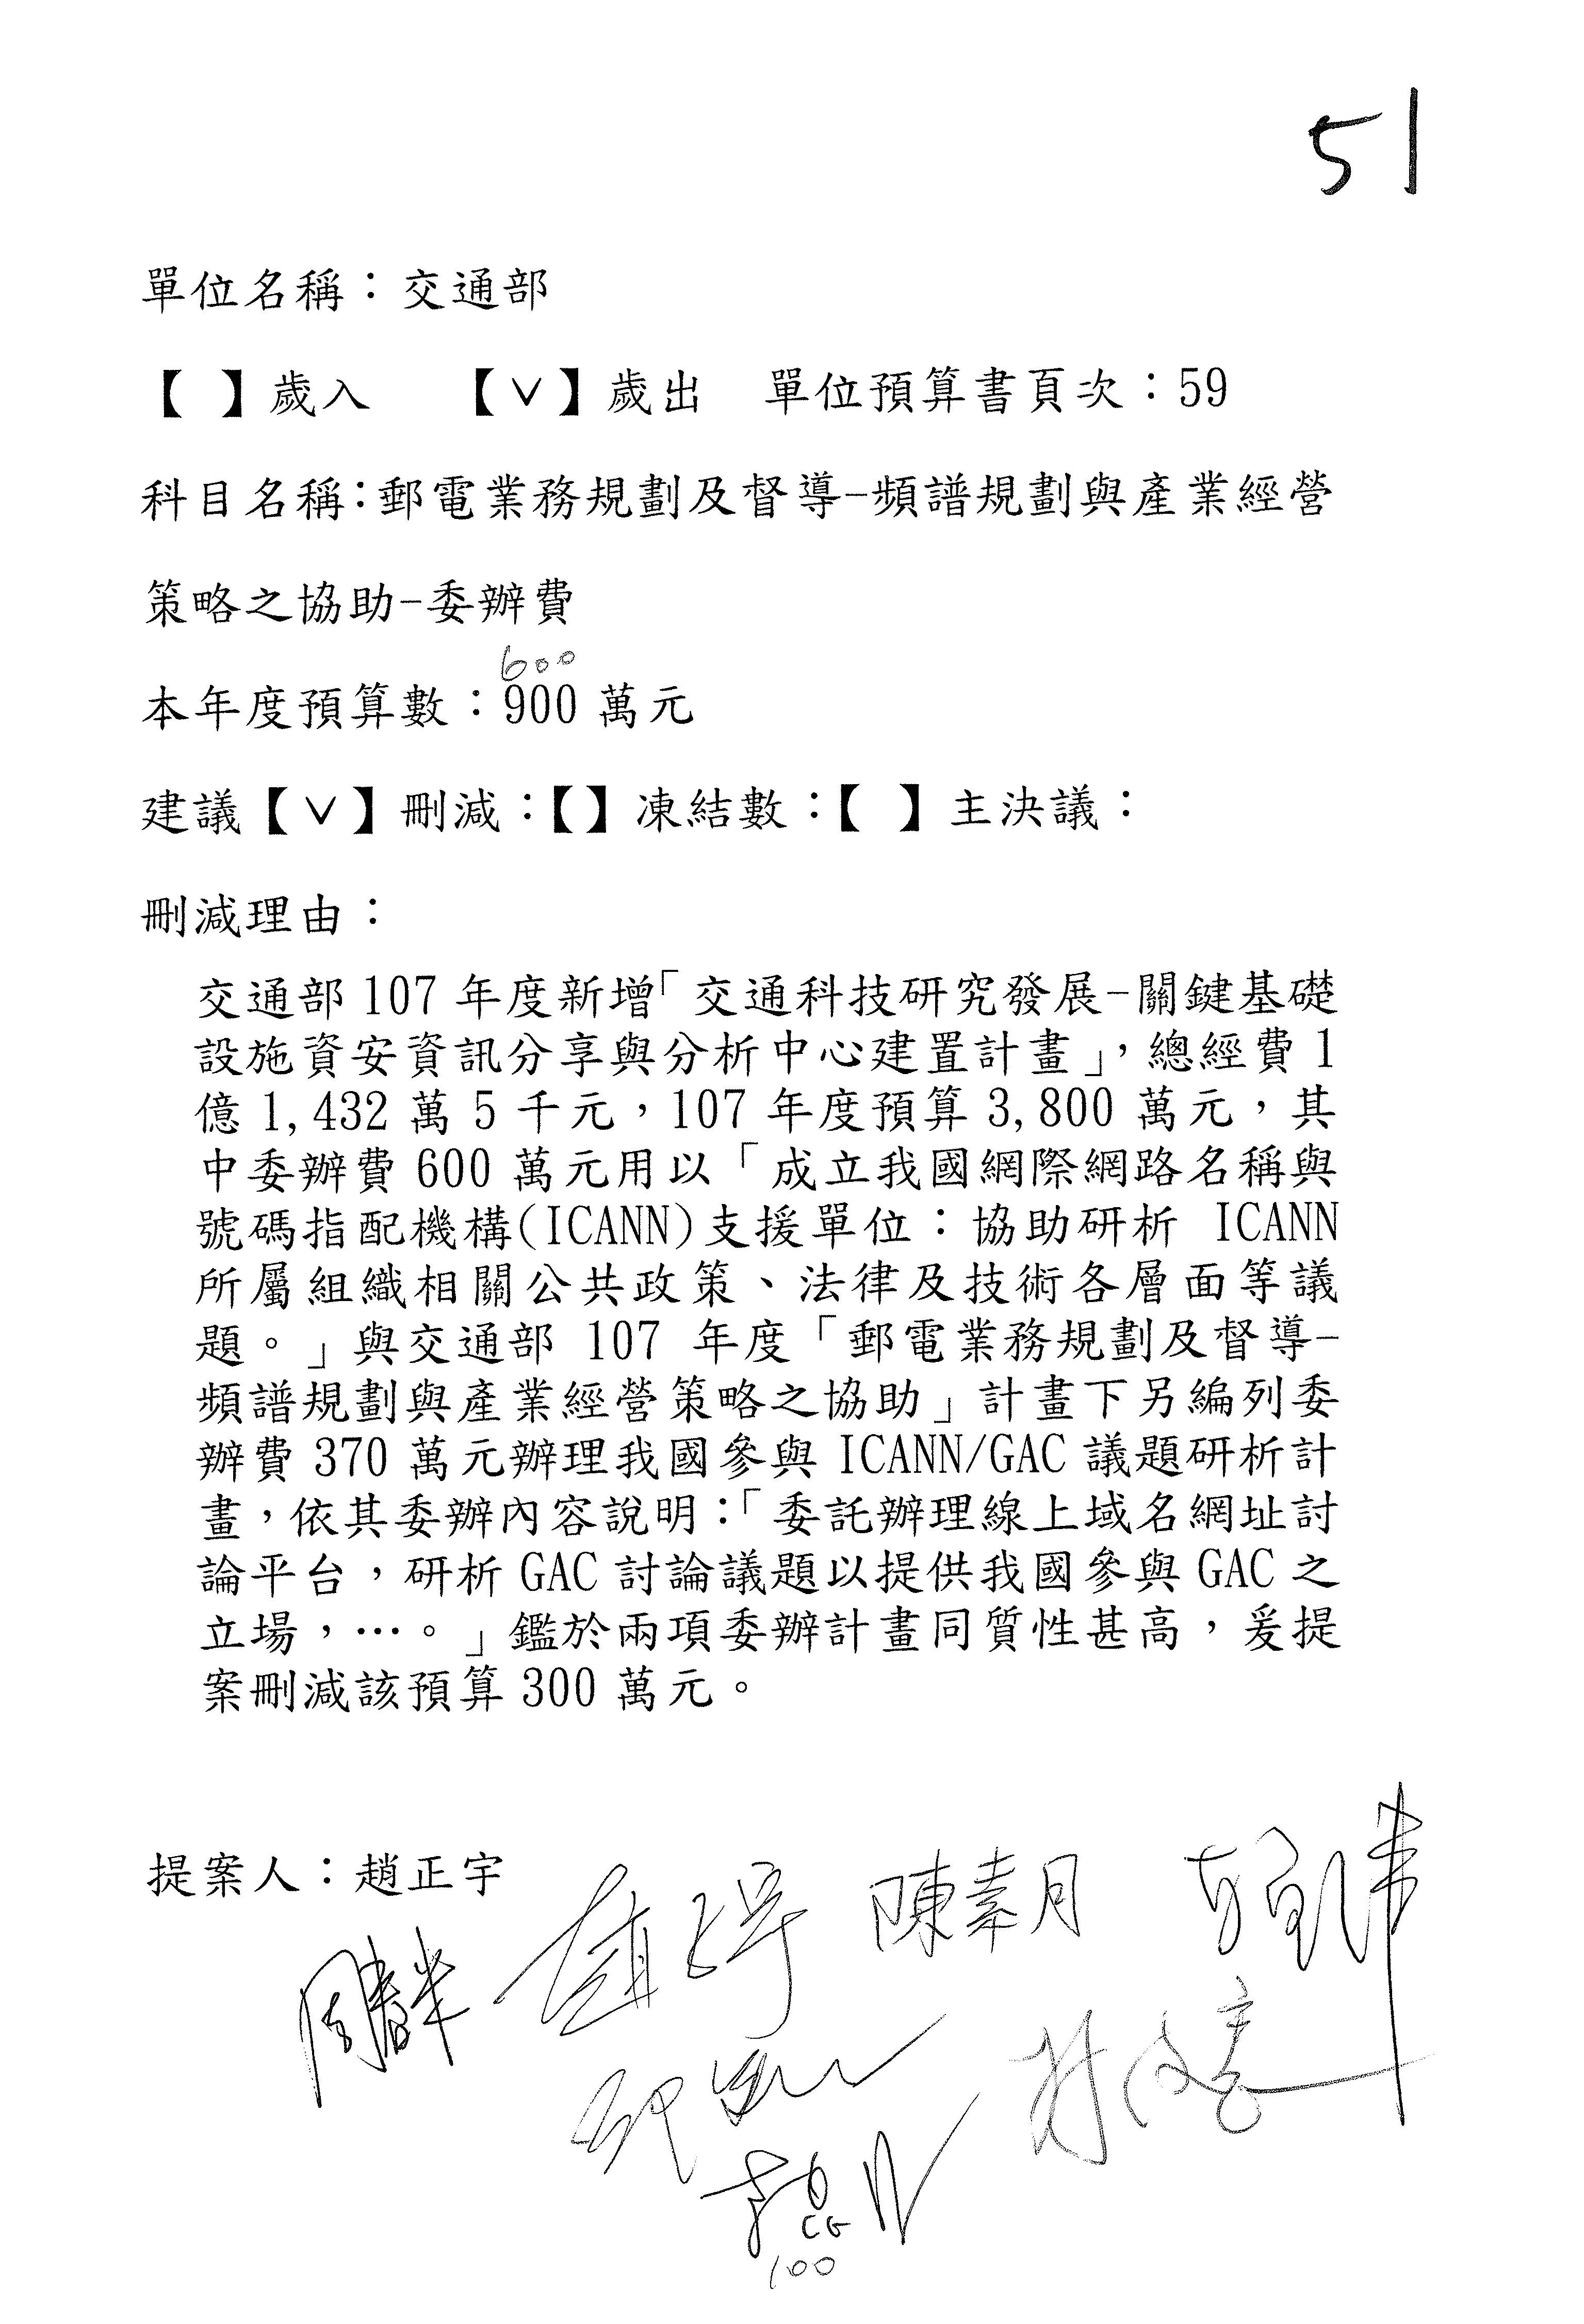 51
單位名稱：交通部
【 】歲入 【∨】歲出 單位預算書頁次：59
科目名稱：郵電業務規劃及督導-頻譜規劃與產業經營
策略之協助-委辦費
600
本年度預算數：900 萬元
建議【∨】刪減：【】凍結數：【 】主決議：
刪減理由：
交通部 107 年度新增「交通科技研究發展-關鍵基礎
設施資安資訊分享與分析中心建置計畫」，總經費 1
億 1,432 萬 5 千元，107 年度預算 3,800 萬元，其
中委辦費 600 萬元用以「成立我國網際網路名稱與
號碼指配機構(ICANN)支援單位：協助研析 ICANN
所屬組織相關公共政策、法律及技術各層面等議
題。」與交通部 107 年度「郵電業務規劃及督導-
頻譜規劃與產業經營策略之協助」計畫下另編列委
辦費 370 萬元辦理我國參與 ICANN/GAC 議題研析計
畫，依其委辦內容說明：「委託辦理線上域名網址討
論平台，研析 GAC 討論議題以提供我國參與 GAC 之
立場，…。」鑑於兩項委辦計畫同質性甚高，爰提
案刪減該預算 300 萬元。
提案人：趙正宇
陳素月
100